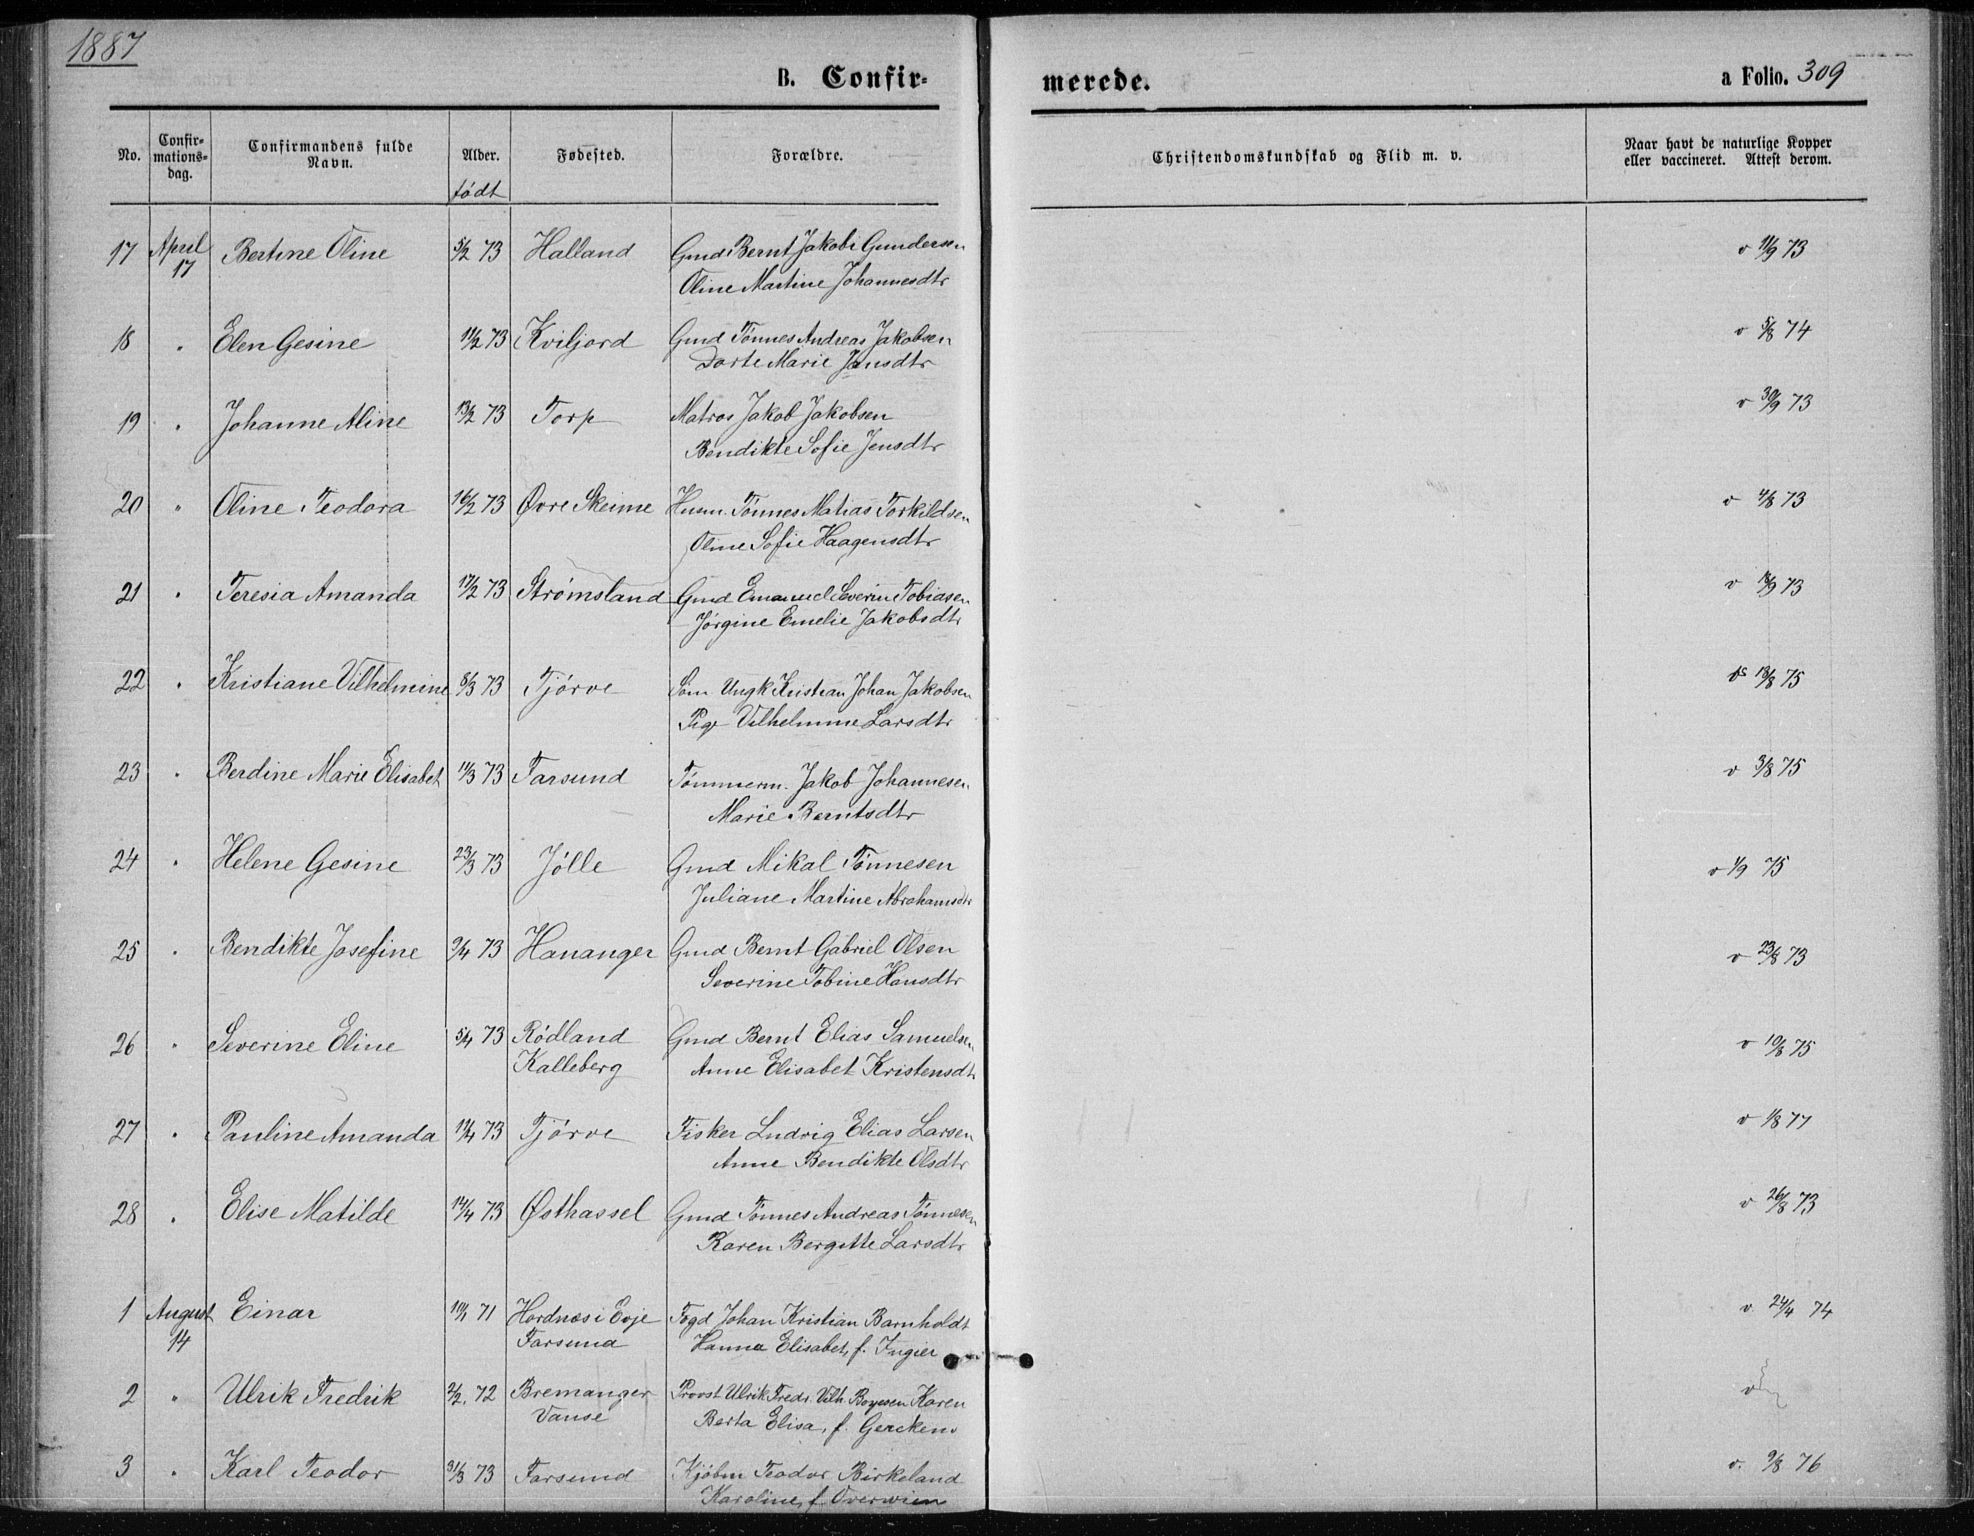 1887
B. Confir-
merede.
a Folio. 309
No.
Confir-
mations-
dag.
Confirmandens fulde
Navn.
Alder.
født
Fødested.
Forældre.
Christendomskundskab og Flid m. v.
Naar havt de naturlige Kopper
eller vaccineret. Attest derom.
17 April 17 Bertine Oline 5/2 73 Halland Gmd Bernt Jakobi Gundersen v 11/9 73
Oline Martine Johannesdtr
18 " Elen Gesine 11/2 73 Kviljord Gmd Tønnes Andreas Jakobsen v 5/8 74
Dorte Marie Jansdtr
19 " Johanne Aline 13/2 73 Torp Matros Jakob Jakobsen v 30/9 73
Bendikte Sofie Jensdtr
20 " Oline Teodora 16/2 73 Øvre Skeime Husm. Tønnes Matias Torkildsen v 4/8 73
Oline Sofie Haagensdtr
21 " Teresia Amanda 17/2 73 Strømsland Gmd Emanuel Severin Tobiasen v 18/9 73
Jørgine Emelie Jakobsdtr
22 " Kristiane Vilhelmine 8/3 73 Tjørve Søm Ungk Kristian Johan Jakobsen v 13/8 75
Pige Vilhelmine Larsdtr
23 " Berdine Marie Elisabet 11/3 73 Farsund Tømmerm. Jakob Johannesen v 3/8 75
Marie Berntsdtr
24 " Helene Gesine 23/3 73 Jølle Gmd Mikal Tønnesen v 1/9 75
Juliane Martine Abrahamsdtr
25 " Bendikte Josefine 3/4 73 Hananger Gmd Bernt Gabriel Olsen v 23/8 73
Severine Tobine Hansdtr
26 " Severine Eline 5/4 73 Rødland Gmd Bernt Elias Samuelsen v 10/8 75
Kalleberg Anne Elisabet Kristensdtr
27 " Pauline Amanda 13/4 73 Tjørve Fisker Ludvig Elias Larsen v 1/8 77
Anne Bendikte Olsdtr
28 " Elise Matilde 14/4 73 Østhassel Gmd Tønnes Andreas Tønnesen v 26/8 73
Karen Bergitte Larsdtr
1 August 14 Einar 10/1 71 Hordnæs i Evje Fogd Johan Kristian Barnholdt v. 24/4 74
Farsund Hanna Elisabet, f. Ingier
2 " Ulrik Fredrik 2/2. 72 Bremanger Provst Ulrik Fredr. Vilh. Boyesen Karen v
Vanse Berta Elisa, f. Gerckens
3 " Karl Teodor 31/3 73 Farsund Kjøbm Teodor Birkeland v. 9/8 76
Karoline, f. Overwien